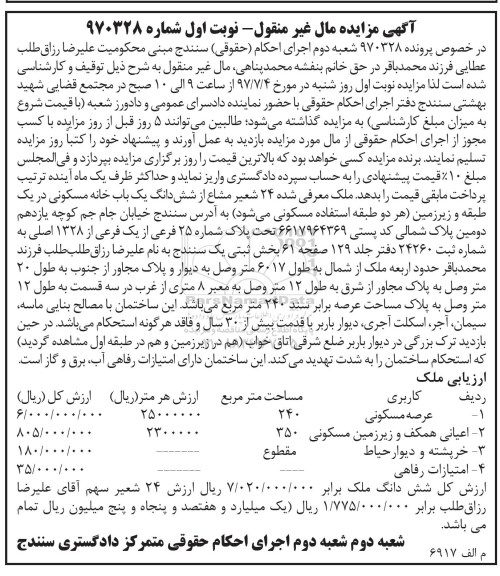 آگهی مزایده مال غیر منقول- نوبت اول شماره ۹۷۰۳۲۸
در خصوص پرونده ۹۷۰۳۲۸ شعبه دوم اجرای احکام (حقوقی) سنندج مبنی محکومیت علیرضا رزاق‌طلب
عطایی فرزند محمدباقر در حق خانم بنفشه محمدپناهی، مال غیر منقول به شرح ذیل توقیف و کارشناسی
شده است لذا مزایده نوبت اول روز شنبه در مورخ ۹۷/۷/۴ از ساعت ۹ الی ۱۰ صبح در مجتمع قضایی شهید
بهشتی سنندج دفتر اجرای احکام حقوقی با حضور نماینده دادسرای عمومی و دادورز شعبه (با قیمت شروع
به میزان مبلغ کارشناسی) به مزایده گذاشته می‌شود؛ طالبین می‌توانند ۵ روز قبل از روز مزایده با کسب
مجوز از اجرای احکام حقوقی از مال مورد مزایده بازدید به عمل آورند و پیشنهاد خود را کتباً روز مزایده
تسلیم نمایند. برنده مزایده کسی خواهد بود که بالاترین قیمت را روز برگزاری مزایده بپردازد و فی‌المجلس
مبلغ ۱۰٪ قیمت پیشنهادی را به حساب سپرده دادگستری واریز نماید و حداکثر ظرف یک ماه آینده ترتیب
پرداخت مابقی قیمت را بدهد. ملک معرفی شده ۲۴ شعیر مشاع از شش‌دانگ یک باب خانه مسکونی در یک
طبقه و زیرزمین (هر دو طبقه استفاده مسکونی می‌شود) به آدرس سنندج خیابان جام جم کوچه یازدهم
دومین پلاک شمالی کد پستی ۶۶۱۷۹۶۴۳۶۹ تحت پلاک شماره ۲۵ فرعی از یک فرعی از ۱۳۲۸ اصلی به
شماره ثبت ۲۴۲۶۰ دفتر جلد ۱۲۹ صفحه ۶۱ بخش ثبتی یک سنندج به نام علیرضا رزاق‌طلب‌طلب فرزند
محمدباقر حدود اربعه ملک از شمال به طول ۶۰۱۷ متر وصل به دیوار و پلاک مجاور از جنوب به طول ۲۰
متر وصل به پلاک مجاور از شرق به طول ۱۲ متر وصل به معبر ۸ متری از غرب در سه قسمت به طول ۱۲
متر وصل به پلاک مساحت عرصه برابر سند ۲۴۰ متر مربع می‌باشد. این ساختمان با مصالح بنایی ماسه،
سیمان، آجر، اسکلت آجری، دیوار باربر با قدمت بیش از ۳۰ سال و فاقد هرگونه استحکام می‌باشد. در حین
بازدید ترک بزرگی در دیوار باربر ضلع شرقی اتاق خواب (هم در زیرزمین و هم در طبقه اول مشاهده گردید)
که استحکام ساختمان را به شدت تهدید می‌کند. این ساختمان دارای امتیازات رفاهی آب، برق و گاز است.
ارزیابی ملک
ردیف کاربری مساحت متر مربع ارزش هر متر (ریال) ارزش کل (ریال)
۱- عرصه مسکونی ۲۴۰ ۲۵۰۰۰۰۰۰ ۶/۰۰۰/۰۰۰/۰۰۰
۲- اعیانی همکف و زیرزمین مسکونی ۳۵۰ ۲۳۰۰۰۰۰ ۸۰۵/۰۰۰/۰۰۰
۳- خرپشته و دیوار حیاط مقطوع ------- ۱۸۰/۰۰۰/۰۰۰
۴- امتیازات رفاهی ---- ------- ۳۵/۰۰۰/۰۰۰
ارزش کل شش دانگ ملک برابر ۷/۰۲۰/۰۰۰/۰۰۰ ریال ارزش ۲۴ شعیر سهم آقای علیرضا
رزاق‌طلب برابر ۱/۷۷۵/۰۰۰/۰۰۰ ریال (یک میلیارد و هفتصد و پنجاه و پنج میلیون ریال تمام
می باشد.
شعبه دوم شعبه دوم اجرای احکام حقوقی متمرکز دادگستری سنندج
م الف ۶۹۱۷